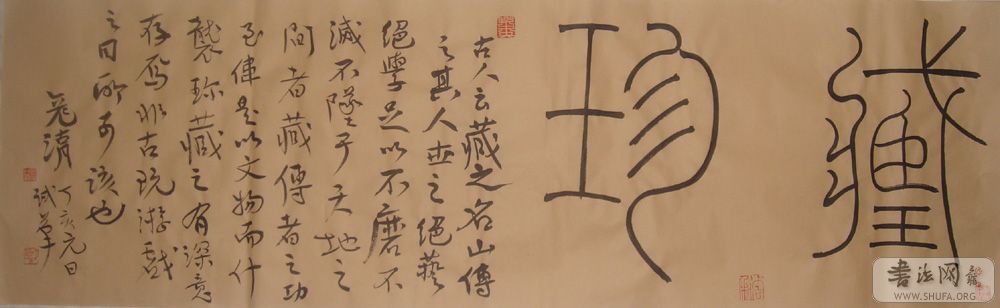 藏珍
古人云藏之名山傳
之其人世之絕藝
絕學足以不磨不
滅不墜于天地之
間者藏傳者之功
至偉是以文物而什
襲珍藏之有深意
存焉非古玩游戲
之目所可該也
清
丁亥元日
試筆
書法网
WWW.SHUFA.ORG